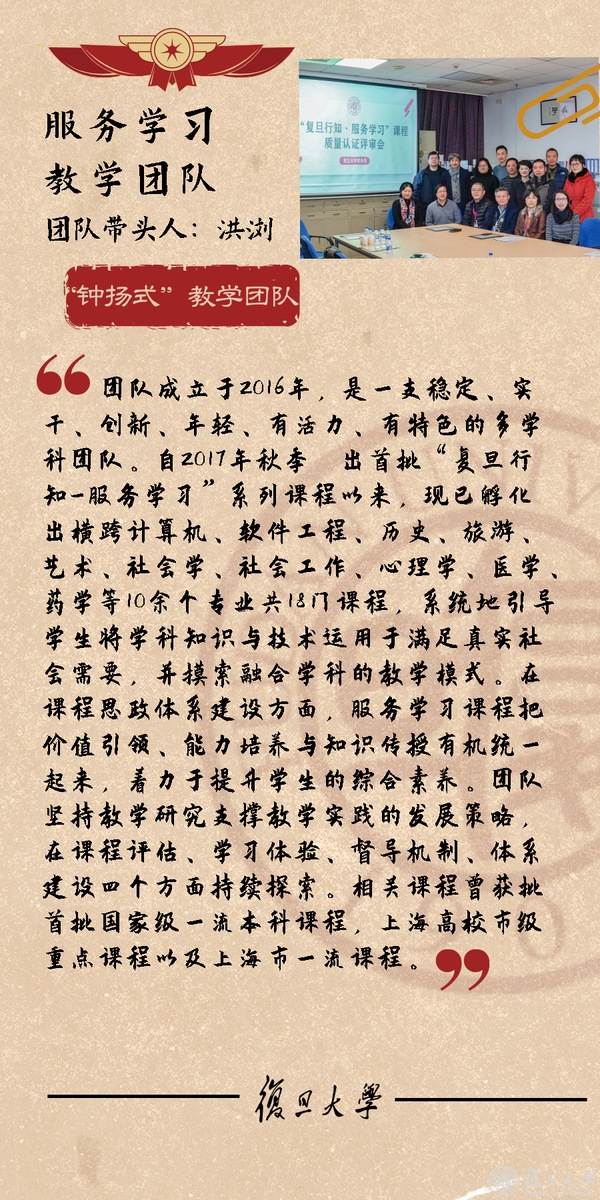 服务学习
教学团队
团队带头人：洪浏
“钟扬式”教学团队
“复旦行知·服务学习”课程
质量认证评审会
团队成立于2016年，是一支稳定、实
干、创新、年轻、有活力、有特色的多学
科团队。自2017年秋季 出首批“复旦行
知-服务学习”系列课程以来，现已孵化
出横跨计算机、软件工程、历史、旅游、
艺术、社会学、社会工作、心理学、医学、
药学等10余个专业共18门课程，系统地引导
学生将学科知识与技术运用于满足真实社
会需要，并摸索融合学科的教学模式。在
课程思政体系建设方面，服务学习课程把
价值引领、能力培养与知识传授有机统一
起来，着力于提升学生的综合素养。团队
坚持教学研究支撑教学实践的发展策略，
在课程评估、学习体验、督导机制、体系
建设四个方面持续探索。相关课程曾获批
首批国家级一流本科课程，上海高校市级
重点课程以及上海市一流课程。
復旦大學